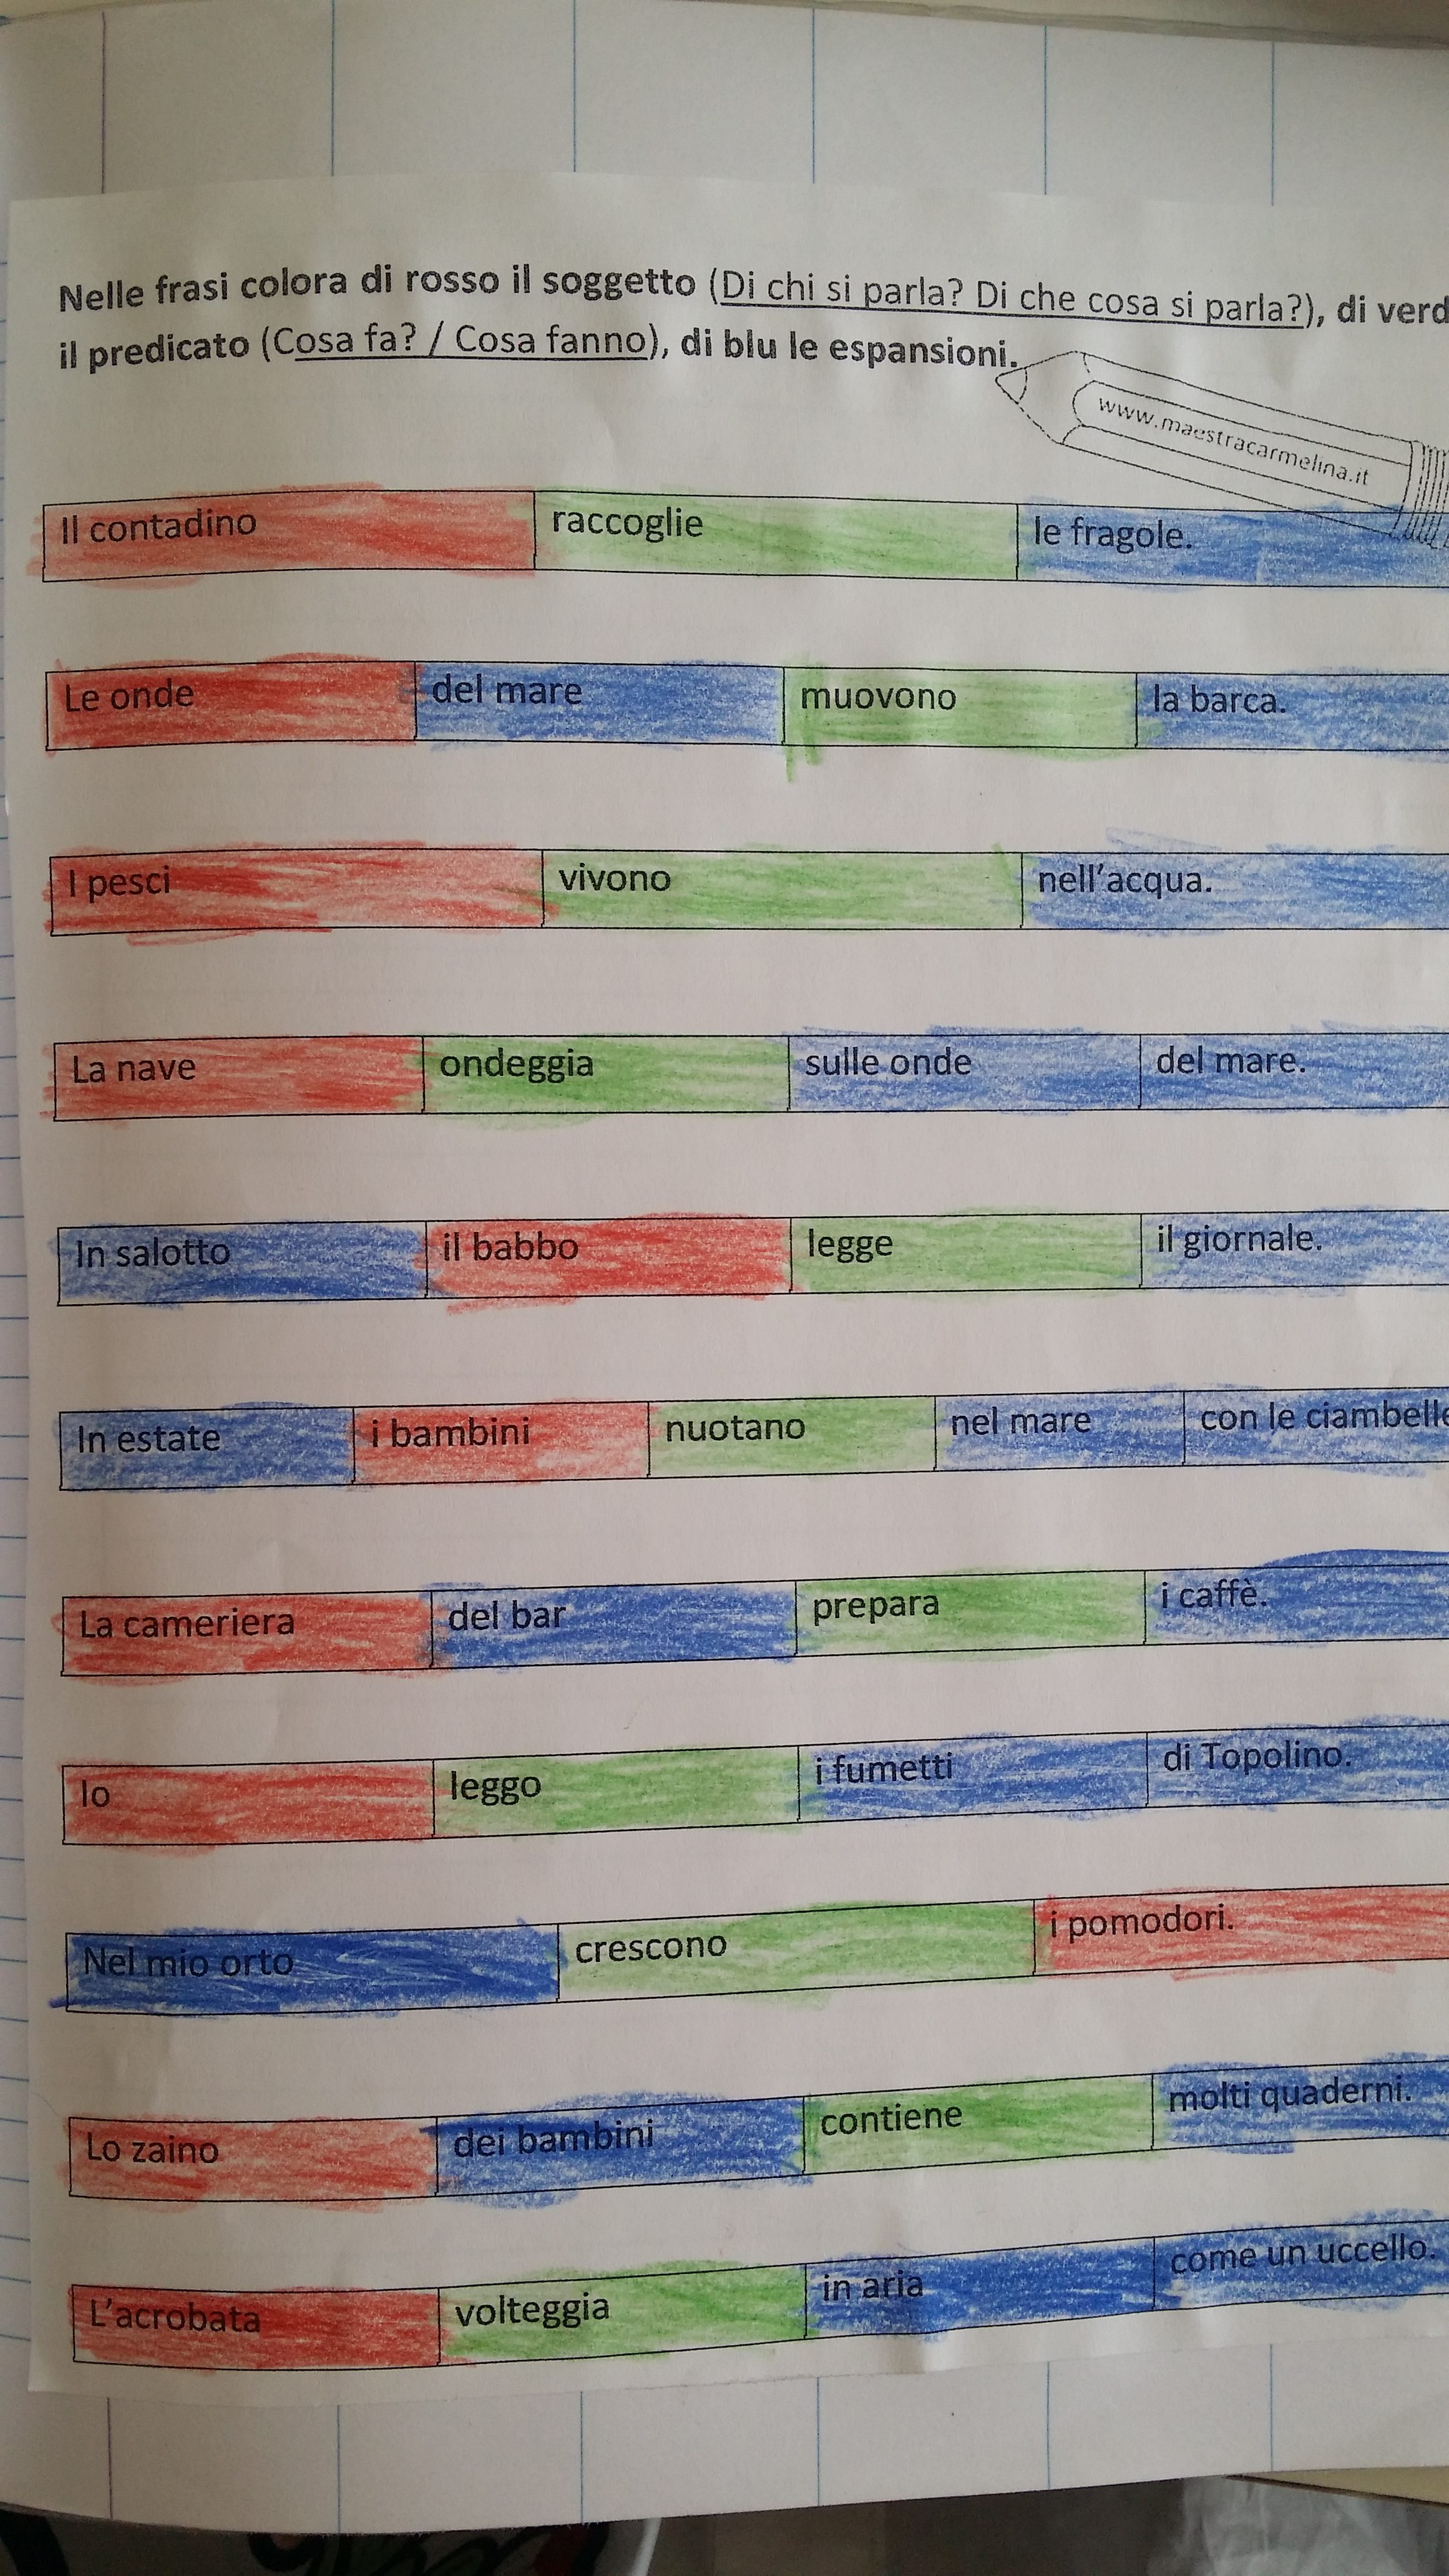 Nelle frasi colora di rosso il soggetto (Di chi si parla? Di che cosa si parla?), di verd
il predicato (Cosa fa? / Cosa fanno), di blu le espansioni.
www.maestracarmelina.it
Il contadino raccoglie le fragole.
Le onde del mare muovono la barca.
I pesci vivono nell'acqua.
La nave ondeggia sulle onde del mare.
In salotto il babbo legge il giornale.
In estate i bambini nuotano nel mare con le ciambelle
La cameriera del bar prepara i caffè.
Io leggo i fumetti di Topolino.
Nel mio orto crescono i pomodori.
Lo zaino dei bambini contiene molti quaderni.
L'acrobata volteggia in aria come un uccello.